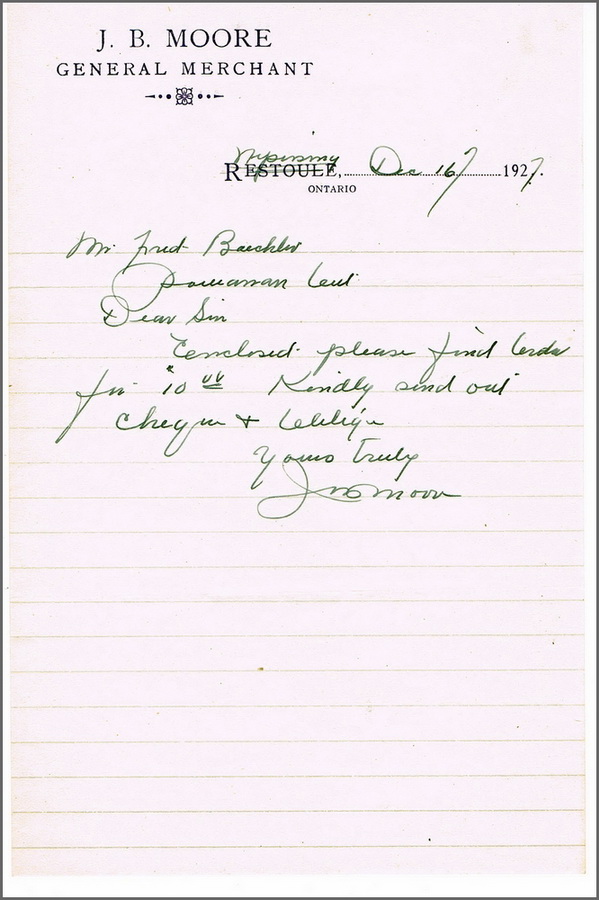 J. B. MOORE
GENERAL MERCHANT
Nipissing
RESTOULE, Dec 16/ 1927.
ONTARIO
Mr. Fred Baechler
Powassan Ont
Dear Sir
Enclosed please find Order
for $10 00 Kindly send out
Cheque & Oblige
Yours Truly
J B Moore